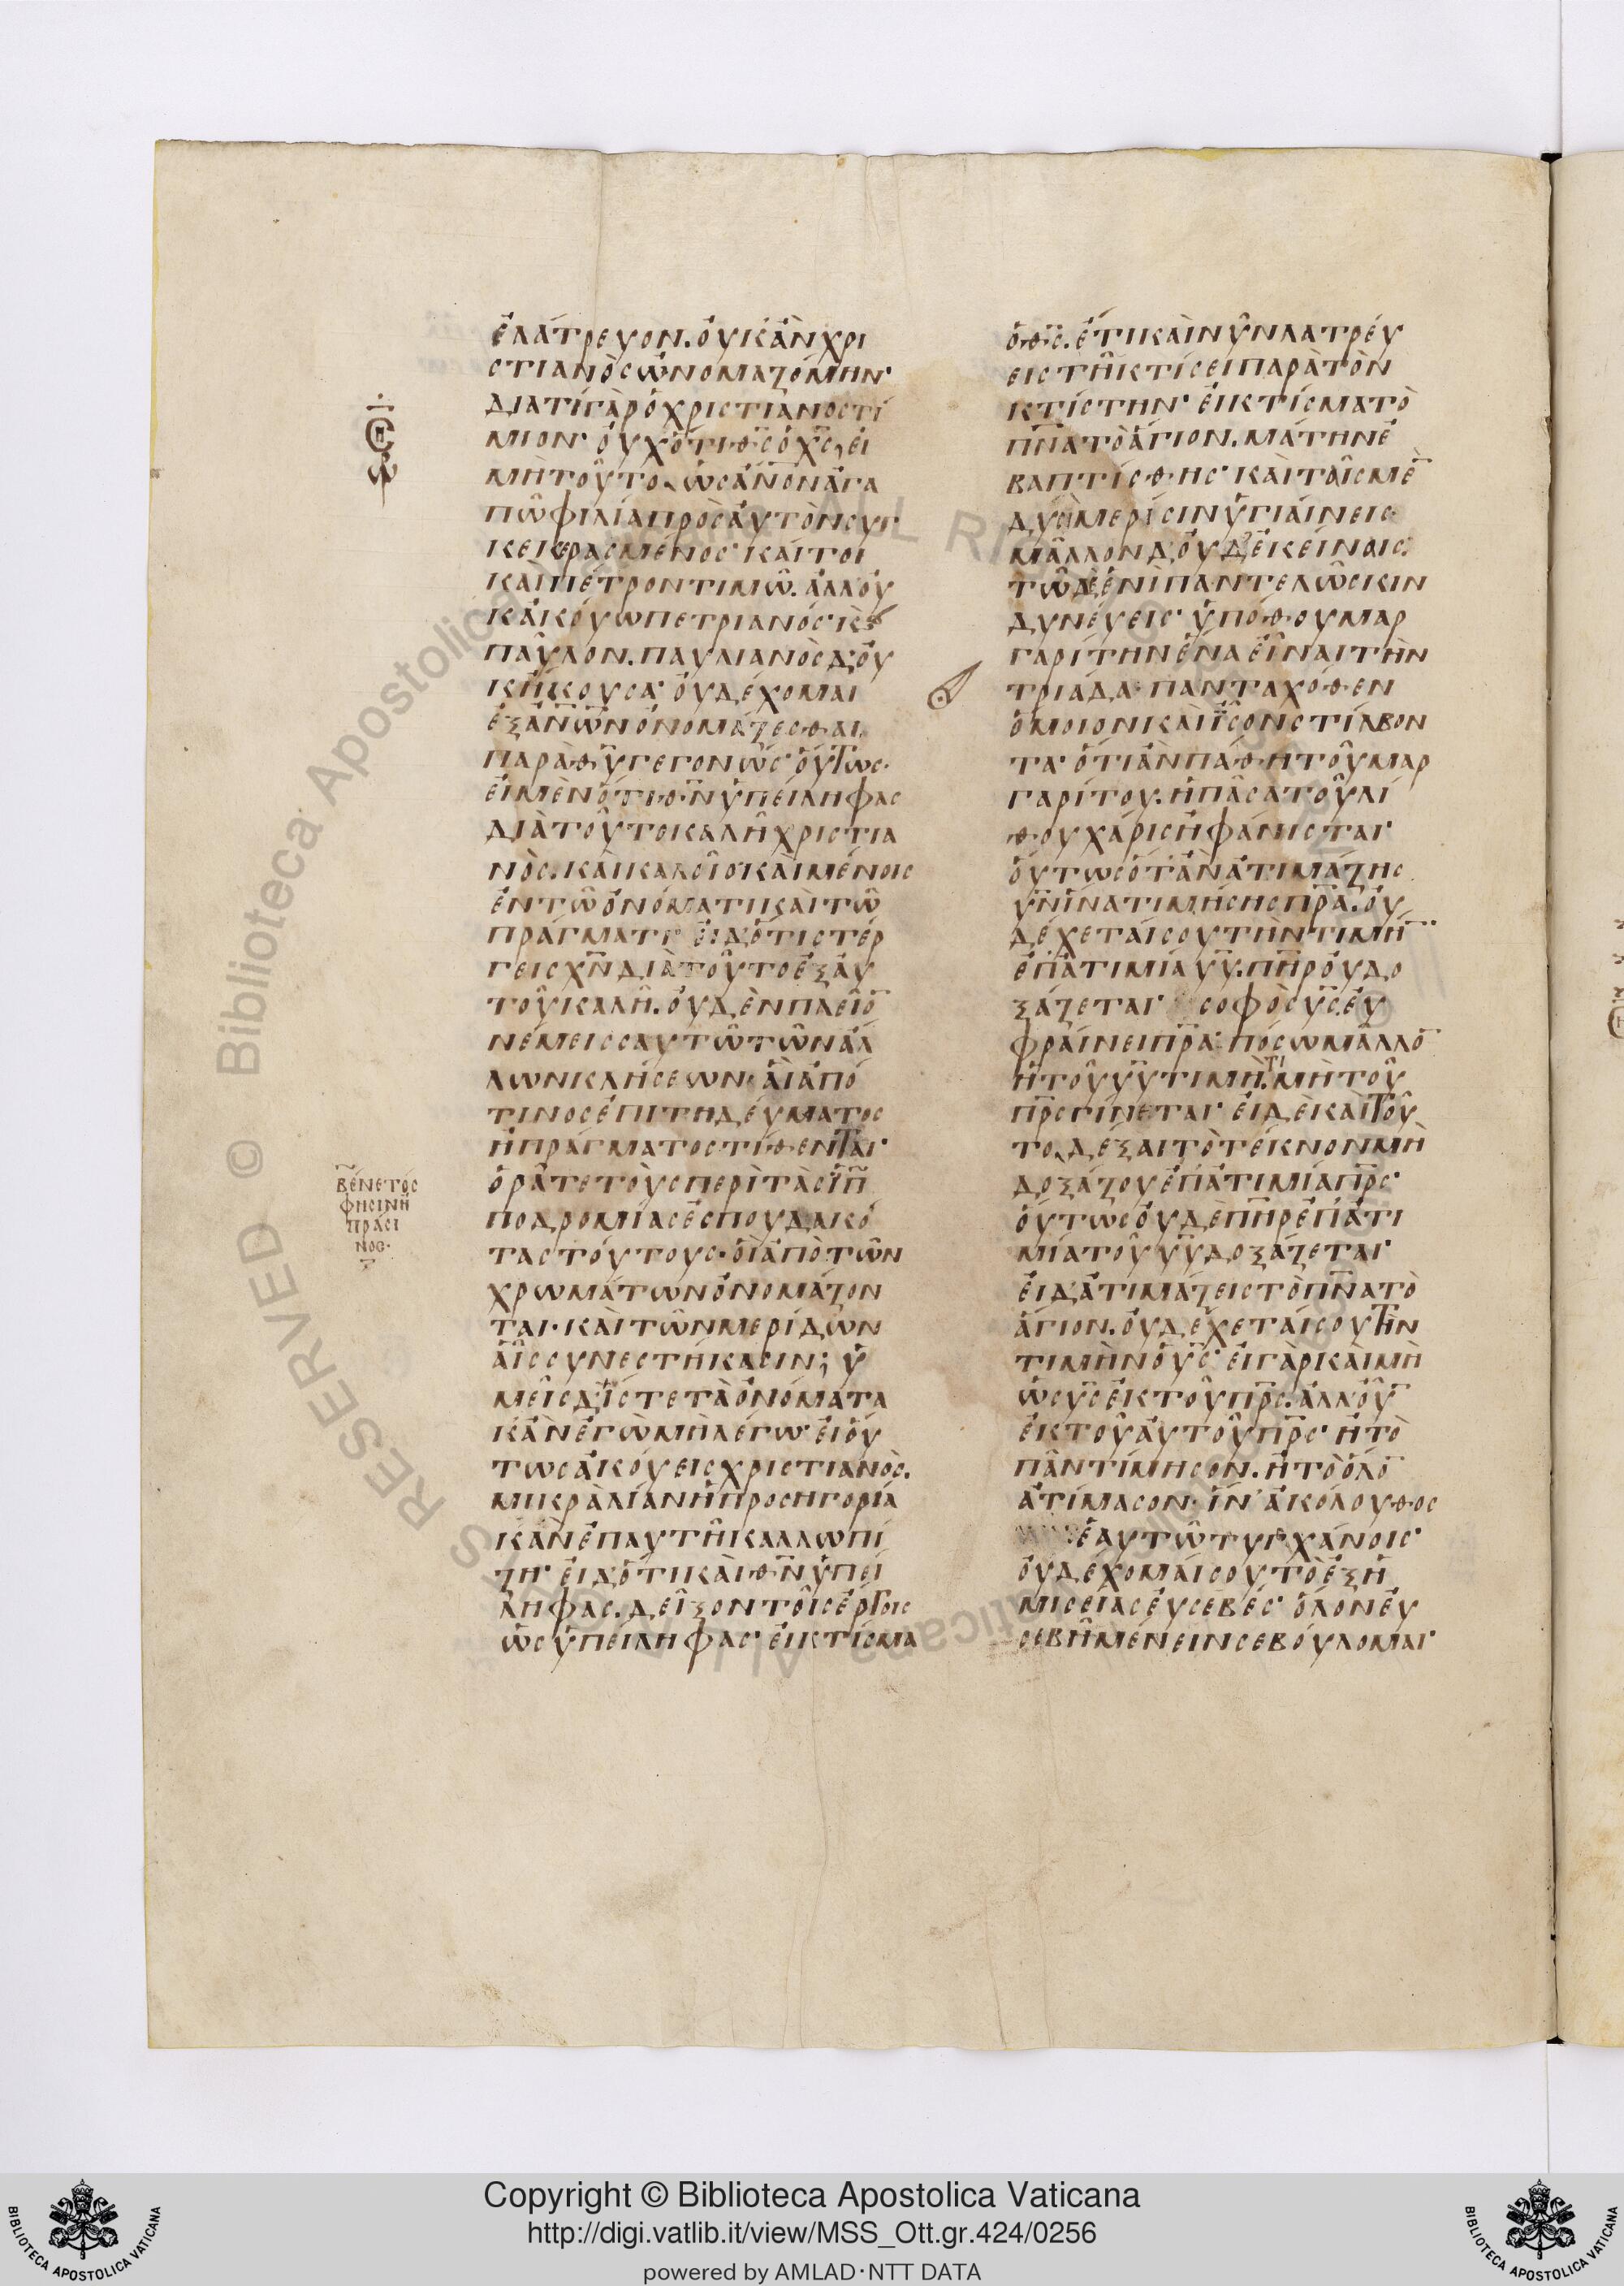 ἐλάτρευον. οὐκ ἂν χρι
στιανὸς ὠνομαζόμην·
διατί γὰρ ὁ χριστιανὸς τί
μιον· οὐχ ὅτι θ̅ς̅ ὁ χ̅ς̅, εἰ
μὴ τοῦτο, ὡς ἄν̅ο̅ν ἀγα
πῶ φιλία πρὸς αὐτὸν συγ
κεκερασμένος· καίτοι
καὶ πέτρον τιμῶ. ἀλλ οὐ
κ ἀκούω πετριανός· κ̀
παῦλον. παυλιανὸς δ' οὐ
κ ἤκουσα· οὐ δέχομαι
ἐξ ἀν̅ω̅ν ὀνομάζεσθαι
παρὰ θ̅υ̅ γεγονώς· οὕτως·
εἰ μὲν ὅτι θ̅ν̅ ὑπείληφας
διὰ τοῦτο καλῆ χριστια
νὸς. καὶ καλοῖο καὶ μένοις
ἐν τῶ ὀνόματι καὶ τῶ
πράγματι· εἰ δ ὅτι στέρ
γεις χ̅ν̅ διὰ τοῦτο ἐξ αὐ
τοῦ καλῆ. οὐδὲν πλεῖο̅
νέμεις αυτῶ τῶν ἄλ
λων κλήσεων· αἳ ἀπό
τινος ἐπιτηδεύματος
ἢ πράγματος τίθενται·
ὁρᾶτε τοὺς περὶ τὰς ἱπ̅
ποδρομίας ἐσπουδακό
τας τούτους· οἳ ἀπὸ τῶν
χρωμάτων ὀνομάζον
ται· καὶ τῶν μερίδων
αἷς συνεστήκασιν; ὑ
μεῖς δ' ἴστε τὰ ὀνόματα
κἂν ἐγὼ μὴ λέγω· εἰ οὕ
τως ἀκούεις χριστιανὸς.
μικρὰ λίαν ἡ προσηγορία
κἂν ἐπ αυτῆ καλλωπί
ζη· εἰ δ ὅτι καὶ θ̅ν̅ ὑπεί
ληφας. δεῖξον τοῖς ἔργοις
ὡς ὑπείληφας· εἰ κτίσμα
βένετος
φησιν ἢ
πράσι
νος·
ὁ θ̅ς̅. ἔτι καὶ νῦν λατρεύ
εις τῆ κτίσει παρὰ τὸν
κτίστην· εἰ κτίσμα τὸ
π̅ν̅α̅ τὸ ἅγιον. μάτην ἐ
βαπτίσθης· καὶ ταῖς μὲ̅
δυσὶ μερίσιν ὑγιαίνεις
μᾶλλον δ' οὐδ' ἐκείναις.
τῶ δὲ ἑνὶ παντελῶς κιν
δυνεύεις· ὑπόθου μαρ
γαρίτην ἕνα εἶναι τὴν
τριάδα· πανταχόθεν
ὅμοιον καὶ ἴσον στίλβον
τα· ὅτι ἂν πάθη τοῦ μαρ
γαρίτου. ἡ πᾶσα τοῦ λί
θου χάρις ἠφάνισται·
οὕτως ὅταν ἀτιμάζης
υ̅ν̅ ἵνα τιμήσης π̅ρ̅α̅. οὐ
δέχεταί σου τὴν τιμὴ̅
ἐπ ἀτιμία υ̅υ̅. π̅η̅ρ̅ οὐ δο
ξάζεται· σοφὸς υ̅ς̅ εὐ
φραίνει π̅ρ̅α̅· πόσω μᾶλλο̅
ἡ τοῦ υ̅υ̅ τιμὴ. τιμὴ τοῦ
π̅ρ̅ς̅ γίνεται· εἰ δὲ καὶ τοῦ
το, δέξαι τὸ τέκνον μὴ
δοξάζου ἐπ ἀτιμία π̅ρ̅ς̅·
οὕτως οὐδὲ π̅η̅ρ̅ ἐπ ἀτι
μία τοῦ υ̅υ̅ δοξάζεται·
εἰ δ' ἀτιμάζεις τὸ π̅ν̅α̅ τὸ
ἅγιον. οὐ δέχεταί σου τὴν
τιμὴν ὁ υ̅ς̅· εἰ γὰρ καὶ μὴ
ὡς υ̅ς̅ ἐκ τοῦ π̅ρ̅ς̅. ἀλλ' οὖ̅
ἐκ τοῦ αὐτοῦ π̅ρ̅ς̅· ἢ τὸ
πᾶν τίμησον. ἢ τὸ ὅλο̅
ἀτίμασον· ἵν' ἀκόλουθος
ἑαυτῶ τυγχάνοις·
οὐ δέχομαί σου τὸ ἐξ ἡ
μισείας εὐσεβές· ὅλον εὐ
σεβῆ μένειν σε βούλομαι·
Copyright © Biblioteca Apostolica Vaticana
http://digi.vatlib.it/view/MSS_Ott.gr.424/0256
powered by AMLAD·NTT DATA